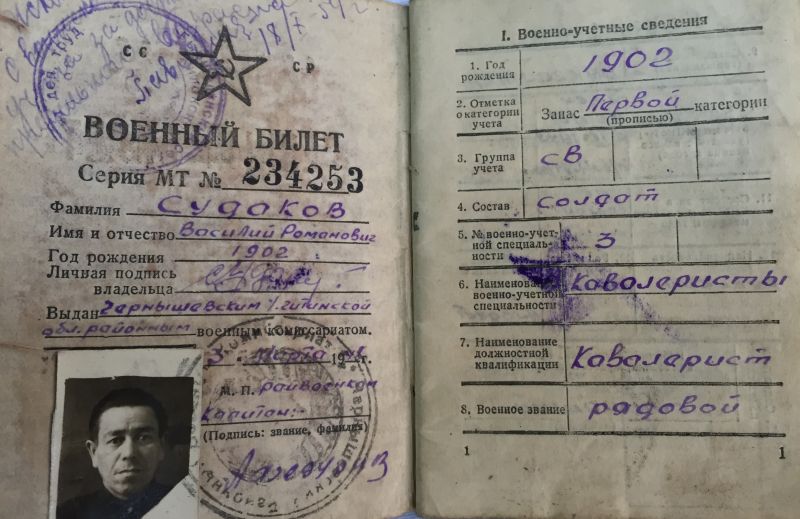 СС СР
ВОЕННЫЙ БИЛЕТ
Серия МТ № 234253
Фамилия Судаков
Имя и отчество Василий Романович
Год рождения 1902
Личная подпись
владельца
Выдан Чернышевским Читинской
обл. районным военным комиссариатом.
3 марта 19 г.
М. П. райвоенком
Капитан:-
(Подпись: звание, фамилия)
I. Военно-учетные сведения
1. Год рождения 1902
2. Отметка о категории учета Запас Первой категории
(прописью)
3. Группа учета св
4. Состав солдат
5. № военно-учетной специальности 3
6. Наименование военно-учетной специальности Кавалеристы
7. Наименование должностной квалификации Кавалерист
8. Военное звание рядовой
1 1